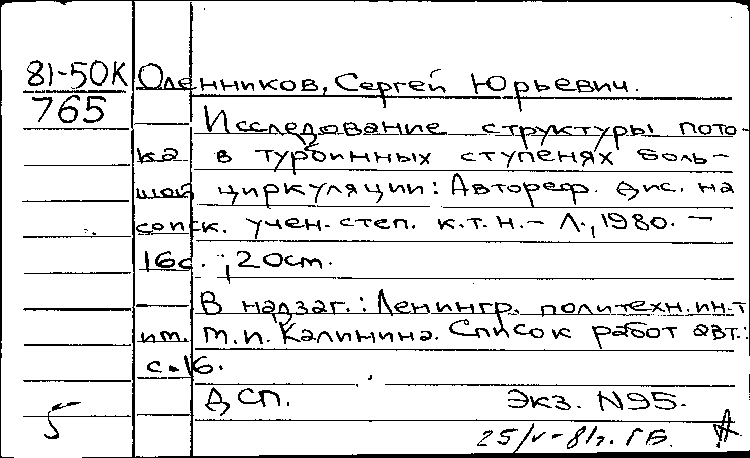 81-50К Оленников, Сергей Юрьевич.
765
Исследование структуры пото-
ка в турбинных ступенях боль-
шой циркуляции: Автореф. дис. на
соиск. учен. степ. к.т.н. - Л., 1980. -
16с. ; 20см.
В надзаг.: Ленингр. политехн. ин-т
им. М.И. Калинина. Список работ авт.:
с. 16.
ДСП. Экз. N95.
5
25/V-81г. ГБ.